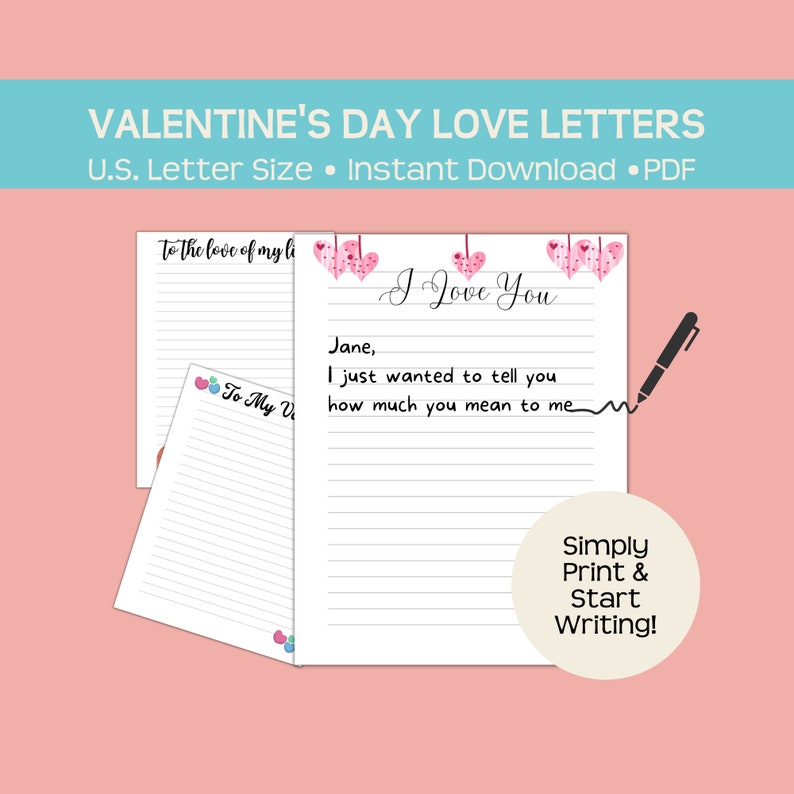 VALENTINE'S DAY LOVE LETTERS
U.S. Letter Size • Instant Download •PDF
to the love of my
To My
I Love You
Jane,
I just wanted to tell you
how much you mean to me
Simply
Print &
Start
Writing!